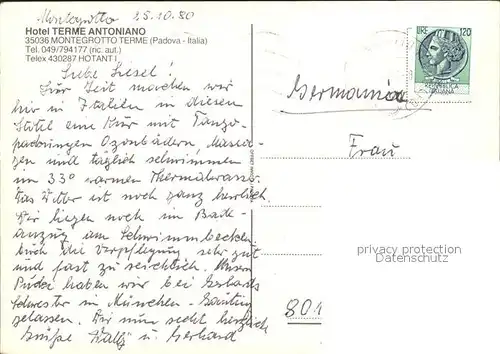 Montegrotto 15.10.80
Hotel TERME ANTONIANO
35036 MONTEGROTTO TERME (Padova - Italia)
Tel. 049/794177 (ric. aut.)
Telex 430287 HOTANTI
Liebe Liesel!
Zur Zeit machen wir
hier in Italien in diesem
Hotel eine Kur mit Fango-
packungen Ozonbädern, Massa-
gen und täglich schwimmen
im 33° warmen Thermalwasser.
Das Wetter ist noch ganz herrlich.
Wir liegen noch im Bade-
anzug am Schwimmbecken.
Auch die Verpflegung sehr gut
und fast zu reichlich. Unsern
Pudel haben wir bei Gerhards
Schwester in München-Gauting
gelassen. Dir nun recht herzliche
Grüße Wally u. Gerhard
LIRE 120
REPUBBLICA
ITALIANA
Germania
Frau
801
privacy protection
Datenschutz